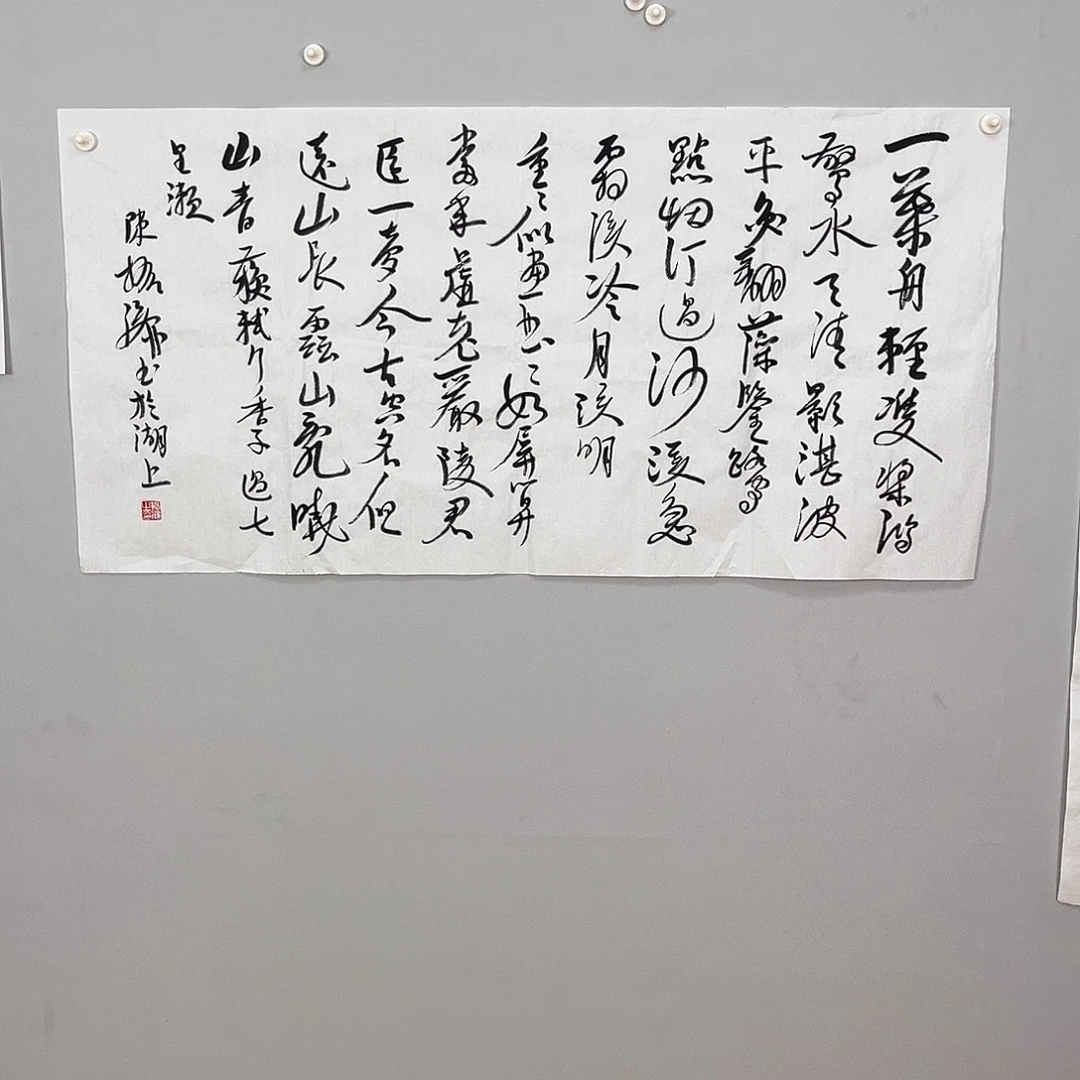 一葉舟輕雙槳鴻
驚水天清影湛波
平魚翻藻鑒鷺
點烟汀過沙溪急
霜溪冷月溪明
重〻似畫曲〻如屏算
當年虛老嚴陵君
臣一夢今古空名但
遠山長雲山亂曉
山青 蘇軾行香子過七
里瀨
陳 書於湖上